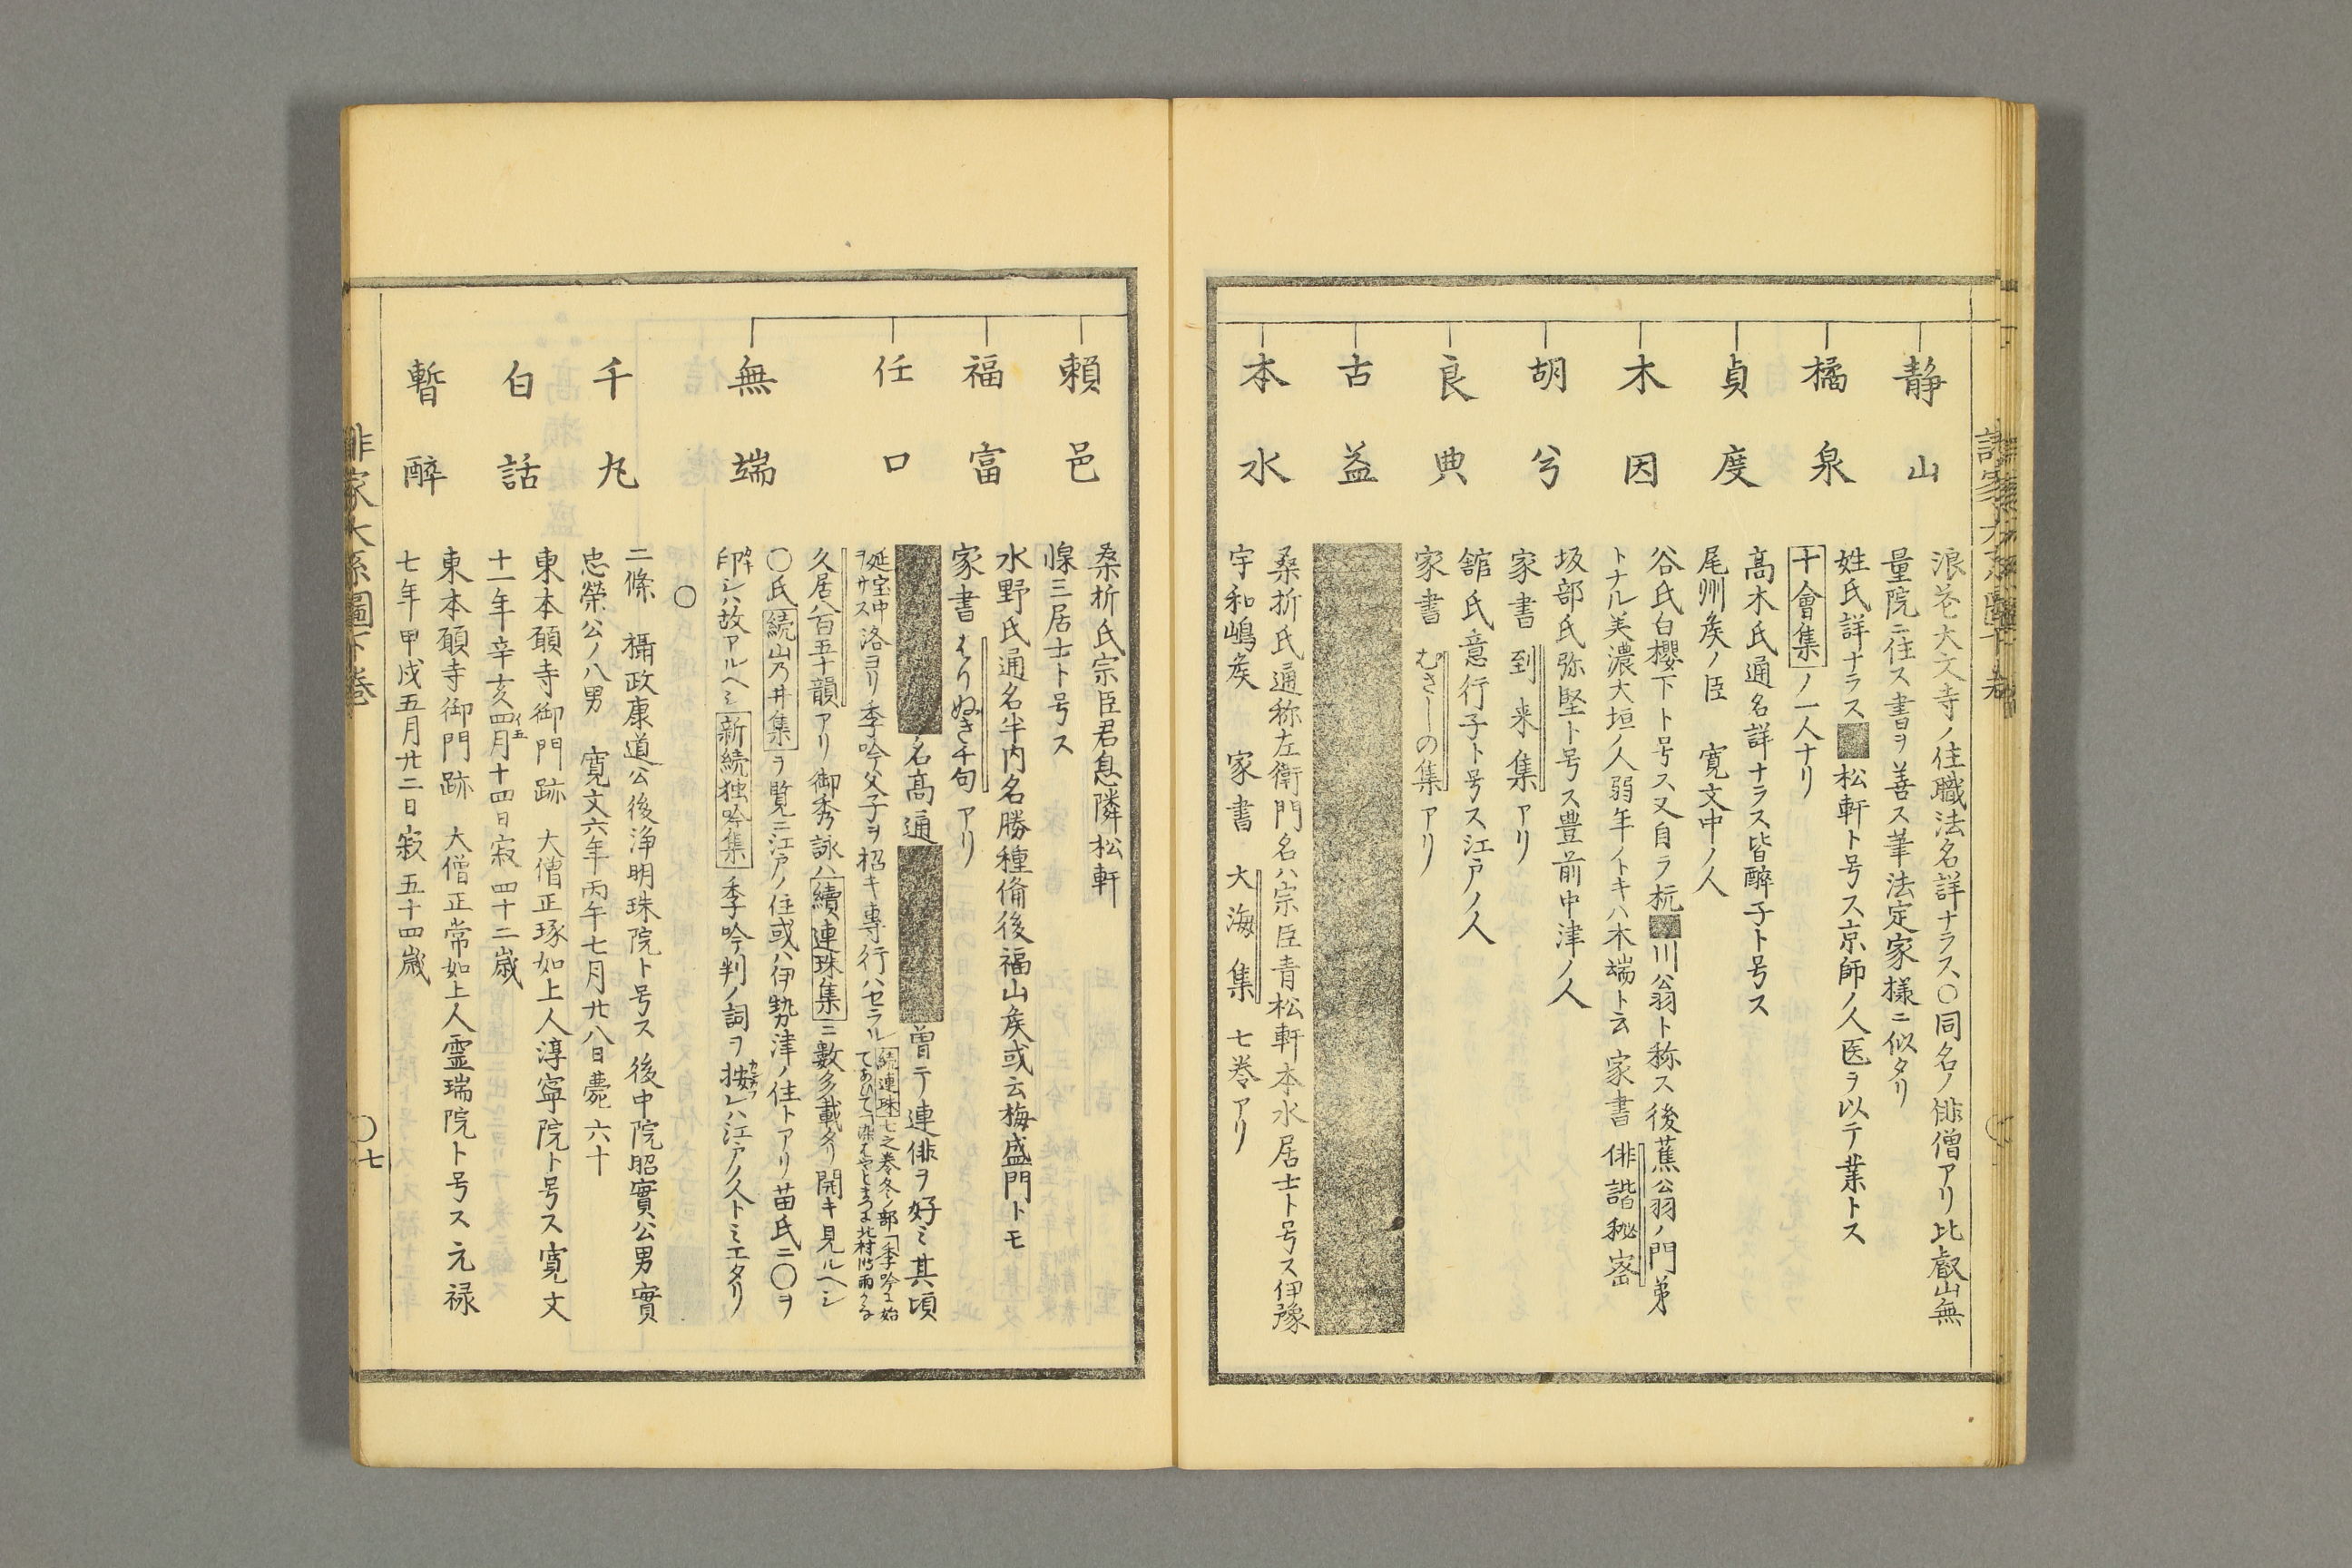 静山
浪花大文寺ノ住職法名詳ナラス〇同名ノ俳僧アリ比叡山無
量院ニ住ス書ヲ善ス筆法定家様ニ似タリ
橘泉
姓氏詳ナラス 松軒ト号ス京師ノ人医ヲ以テ業トス
十會集ノ一人ナリ
貞度
髙木氏通名詳ナラス皆醉子ト号ス
尾州矦ノ臣 寛文中ノ人
木因
谷氏白櫻下ト号ス又自ラ杬 川翁ト称ス後蕉公羽ノ門弟
トナル美濃大垣ノ人弱年ノトキハ木端ト云 家書 俳諧秘密
胡兮
坂部氏弥堅ト号ス豊前中津ノ人
家書 到来集アリ
良典
舘氏意行子ト号ス江戸ノ人
家書 むさしの集アリ
古益
本水
桑折氏通称左衛門名ハ宗臣青松軒本水居士ト号ス伊豫
宇和嶋矦 家書 大海集 七巻アリ
頼邑
桑折氏宗臣君息隣松軒
三居士ト号ス
福富
水野氏通名半内名勝種俻後福山矦或云梅盛門トモ
家書 はりぬき千句 アリ
任口
名髙通 曽テ連俳ヲ好ミ其頃
延宝中
ヲサス
洛ヨリ季吟父子ヲ招キ専行ハセラル
続連珠七之巻冬ノ部「季吟に始
てあひて
久居八百五十韻アリ御秀詠ハ續連珠集ニ數多載タリ開キ見ルヘシ
無端
〇氏続山乃井集ヲ覧ニ江戸ノ住或ハ伊勢津ノ住トアリ苗氏ニ〇ヲ
印シハ故アルヘシ新続独吟集季吟判ノ詞ヲ按レハ江戸ノ人トミエタリ
〇
千丸
二條 攝政康道公後浄明珠院ト号ス 後中院昭實公男實
忠榮公ノ八男 寛文六年丙午七月廿八日薨六十
白話
東本願寺御門跡 大僧正琢如上人淳寧院ト号ス寛文
十一年辛亥四月十四日寂四十二歳
暫醉
東本願寺御門跡 大僧正常如上人霊瑞院ト号ス元禄
七年甲戌五月廿二日寂五十四歳
俳家大系圖下巻
〇七